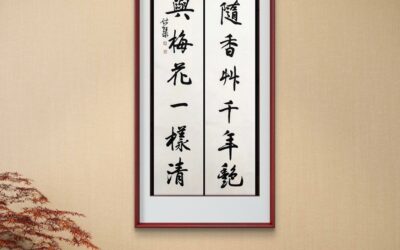 隨香艸千年艷
與梅花一樣清